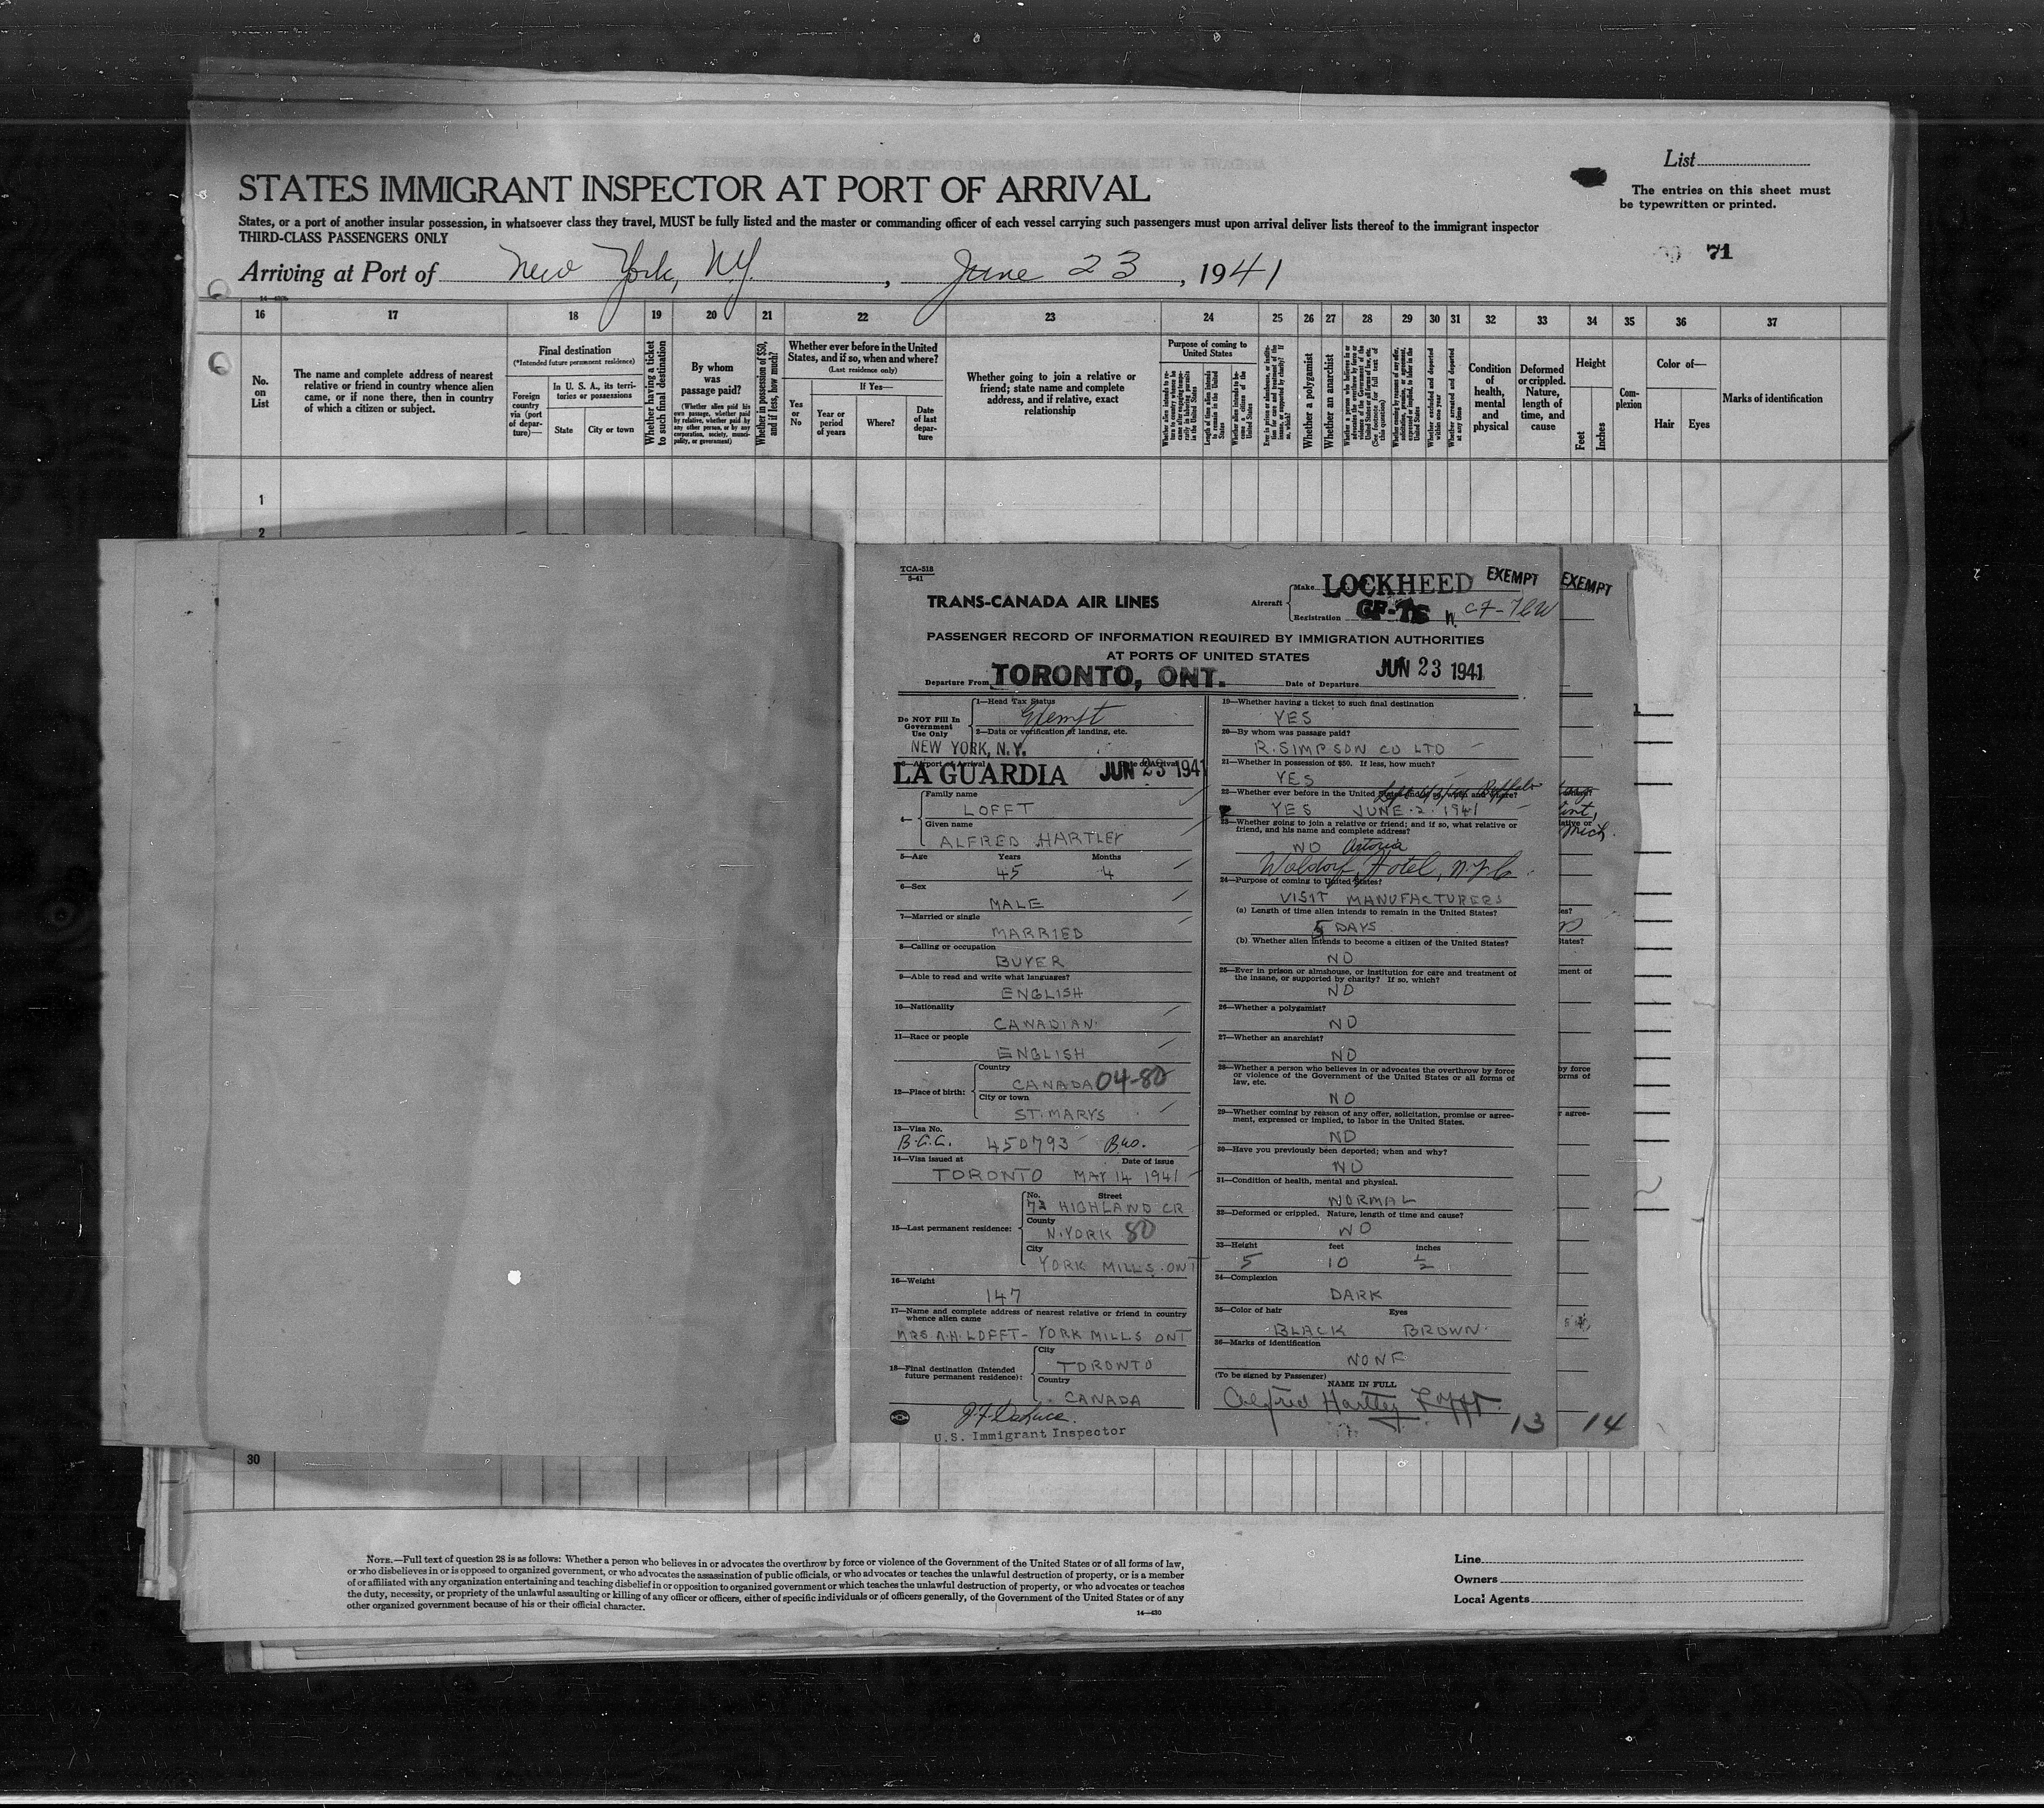 List
STATES IMMIGRANT INSPECTOR AT PORT OF ARRIVAL
The entries on this sheet must
be typewritten or printed.
States, or a port of another insular possession, in whatsoever class they travel, MUST be fully listed and the master or commanding officer of each vessel carrying such passengers must upon arrival deliver lists thereof to the immigrant inspector
THIRD-CLASS PASSENGERS ONLY
71
Arriving at Port of New York, NY. , June 23 , 1941
16 17 18 19 20 21 22 23 24 25 26 27 28 29 30 31 32 33 34 35 36 37
No. on List
The name and complete address of nearest
relative or friend in country whence alien
came, or if none there, then in country
of which a citizen or subject.
Final destination
(*Intended future permanent residence)
Foreign country via (port of departure)—
In U. S. A., its territories or possessions
State
City or town
Whether having a ticket to such final destination
By whom was passage paid?
(Whether alien paid his own passage, whether paid by relative, whether paid by any other person, or by any corporation, society, municipality, or government)
Whether in possession of $50, and if less, how much?
Whether ever before in the United States, and if so, when and where?
(Last residence only)
Yes or No
If Yes—
Year or period of years
Where?
Date of last departure
Whether going to join a relative or
friend; state name and complete
address, and if relative, exact
relationship
Purpose of coming to United States
Whether a polygamist
Whether an anarchist
Condition of health, mental and physical
Deformed or crippled. Nature, length of time, and cause
Height
Feet
Inches
Complexion
Color of—
Hair
Eyes
Marks of identification
1
2
TCA-518
5-41
TRANS-CANADA AIR LINES
Aircraft
Make LOCKHEED
EXEMPT
EXEMPT
Registration CF-TCW
PASSENGER RECORD OF INFORMATION REQUIRED BY IMMIGRATION AUTHORITIES
AT PORTS OF UNITED STATES
Departure From TORONTO, ONT. Date of Departure JUN 23 1941
Do NOT Fill In
Government
Use Only
1—Head Tax Status
Exempt
2—Data or verification of landing, etc.
NEW YORK, N.Y.
LA GUARDIA JUN 23 1941
4—
Family name
LOFFT
Given name
ALFRED HARTLEY
5—Age Years Months
45 4
6—Sex
MALE
7—Married or single
MARRIED
8—Calling or occupation
BUYER
9—Able to read and write what languages?
ENGLISH
10—Nationality
CANADIAN
11—Race or people
ENGLISH
12—Place of birth:
Country
CANADA 04-80
City or town
ST. MARYS
13—Visa No.
B.C.C. 450793 Bus.
14—Visa issued at Date of issue
TORONTO MAY 14 1941
15—Last permanent residence:
No. Street
72 HIGHLAND CR
County
N. YORK 80
City
YORK MILLS. ONT
16—Weight
147
17—Name and complete address of nearest relative or friend in country
whence alien came
MRS A.H. LOFFT- YORK MILLS ONT
18—Final destination (Intended
future permanent residence):
City
TORONTO
Country
CANADA
U.S. Immigrant Inspector
19—Whether having a ticket to such final destination
YES
20—By whom was passage paid?
R. SIMPSON CO LTD
21—Whether in possession of $50. If less, how much?
YES
22—Whether ever before in the United States and if so, when and where?
Buffalo
YES JUNE 2 1941
23—Whether going to join a relative or friend; and if so, what relative or
friend, and his name and complete address?
NO Astoria
Waldorf Hotel, N.Y.C.
24—Purpose of coming to United States?
VISIT MANUFACTURERS
(a) Length of time alien intends to remain in the United States?
5 DAYS
(b) Whether alien intends to become a citizen of the United States?
NO
25—Ever in prison or almshouse, or institution for care and treatment of
the insane, or supported by charity? If so, which?
NO
26—Whether a polygamist?
NO
27—Whether an anarchist?
NO
28—Whether a person who believes in or advocates the overthrow by force
or violence of the Government of the United States or all forms of
law, etc.
NO
29—Whether coming by reason of any offer, solicitation, promise or agree-
ment, expressed or implied, to labor in the United States.
NO
30—Have you previously been deported; when and why?
NO
31—Condition of health, mental and physical.
NORMAL
32—Deformed or crippled. Nature, length of time and cause?
NO
33—Height feet inches
5 10 ½
34—Complexion
DARK
35—Color of hair Eyes
BLACK BROWN
36—Marks of identification
NONE
(To be signed by Passenger)
NAME IN FULL
Alfred Hartley Lofft.
13 14
30
NOTE.—Full text of question 28 is as follows: Whether a person who believes in or advocates the overthrow by force or violence of the Government of the United States or of all forms of law,
or who disbelieves in or is opposed to organized government, or who advocates the assassination of public officials, or who advocates or teaches the unlawful destruction of property, or is a member
of or affiliated with any organization entertaining and teaching disbelief in or opposition to organized government or which teaches the unlawful destruction of property, or who advocates or teaches
the duty, necessity, or propriety of the unlawful assaulting or killing of any officer or officers, either of specific individuals or of officers generally, of the Government of the United States or of any
other organized government because of his or their official character.
14—430
Line
Owners
Local Agents